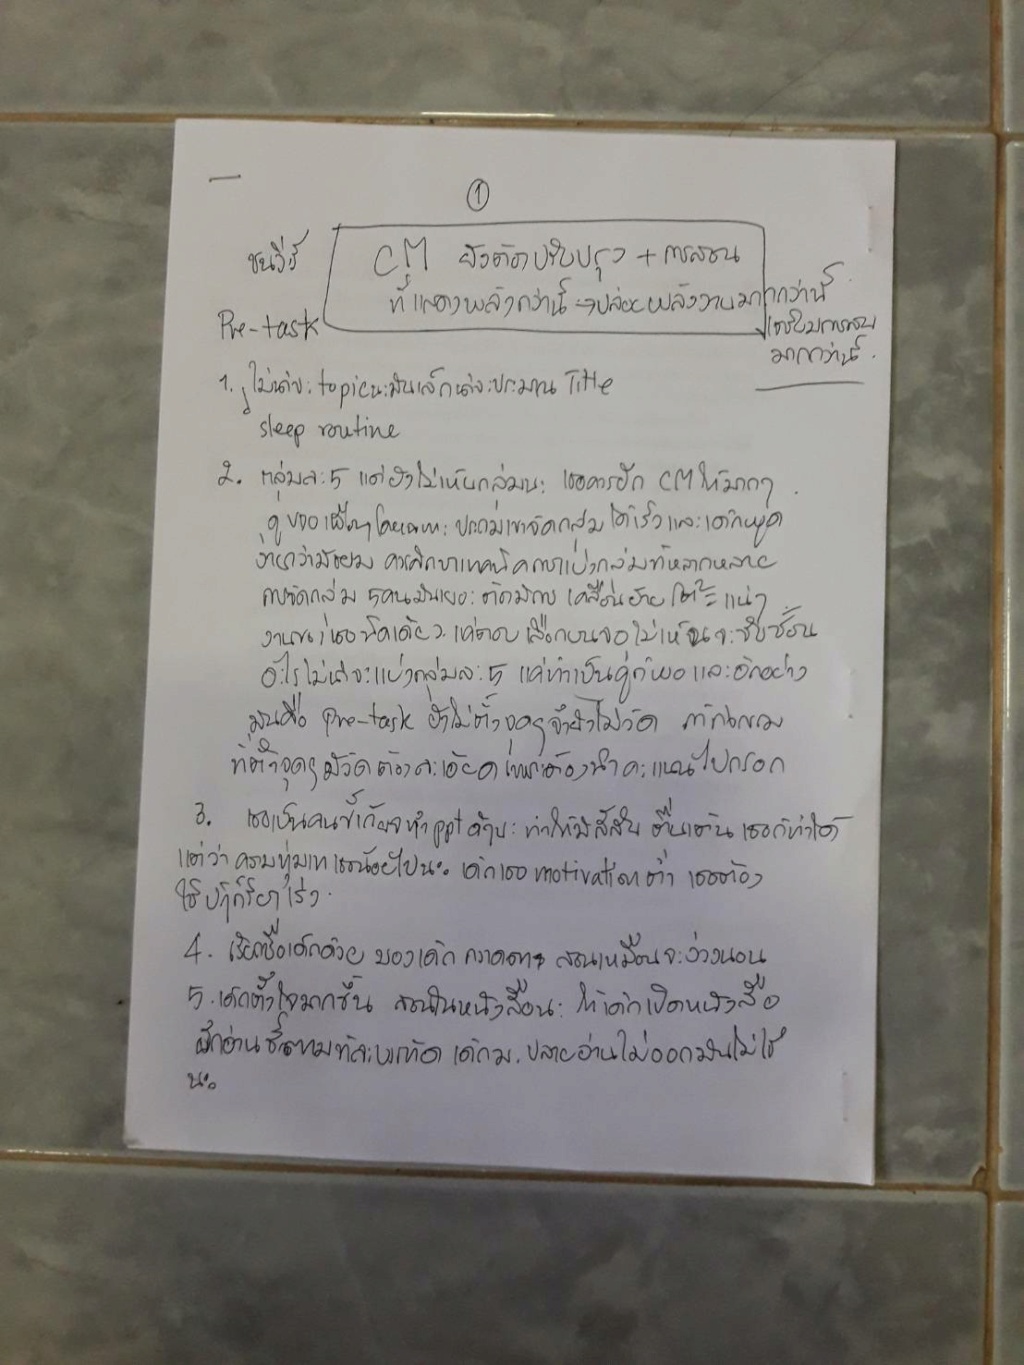 ①
ชนวีร์
CM ยังต้องปรับปรุง + การสอน
ที่แสดงพลังกว่านี้ → ปล่อยพลังงานมากกว่านี้
มากกว่านี้.
Pre-task
1. ไม่น่าจะ topic นะมันเล็กน่าจะประมาณ Title
sleep routine
2. กลุ่มละ 5 แต่ยังไม่เห็นกลุ่มนะ เธอควรฝึก CM ให้มากๆ
ประถมเขาจัดกลุ่มได้เร็วและเด็กพูด
ง่ายกว่ามัธยม ควรศึกษาเทคนิคการแบ่งกลุ่มที่หลากหลาย
การจัดกลุ่ม 5 คนมันเยอะ ต้องมีการเคลื่อนย้ายโต๊ะแน่ๆ
งานเธอนิดเดียว ไม่เห็นจะซับซ้อน
อะไรไม่น่าจะแบ่งกลุ่มละ 5 แค่ทำเป็นคู่ก็พอ และอีกอย่าง
มันคือ Pre-task ยังไม่ตั้งจุดๆ จึงยังไม่วัด
ที่ตั้งจุดๆ มีวัดต้องละเอียด เพราะต้องนำคะแนนไปกรอก
3. เธอเป็นคนขี้เกียจทำ ppt ทำให้มีสีสัน ตื่นเต้น เธอก็ทำได้
แต่ว่า ความทุ่มเทเธอน้อยไปนะ เด็กเธอ motivation ต่ำ เธอต้อง
ใช้
4. เรียกชื่อเด็กด้วย มองเด็ก กวาดตา สอนเหมือนจะง่วงนอน
5. เด็กตั้งใจมากขึ้น สอนในหนังสือนะ ให้เด็กเปิดหนังสือ
ฝึกอ่าน ชี้ตามทีละบรรทัด เด็ก ม. ปลายอ่านไม่ออกมันไม่ใช่
นะ